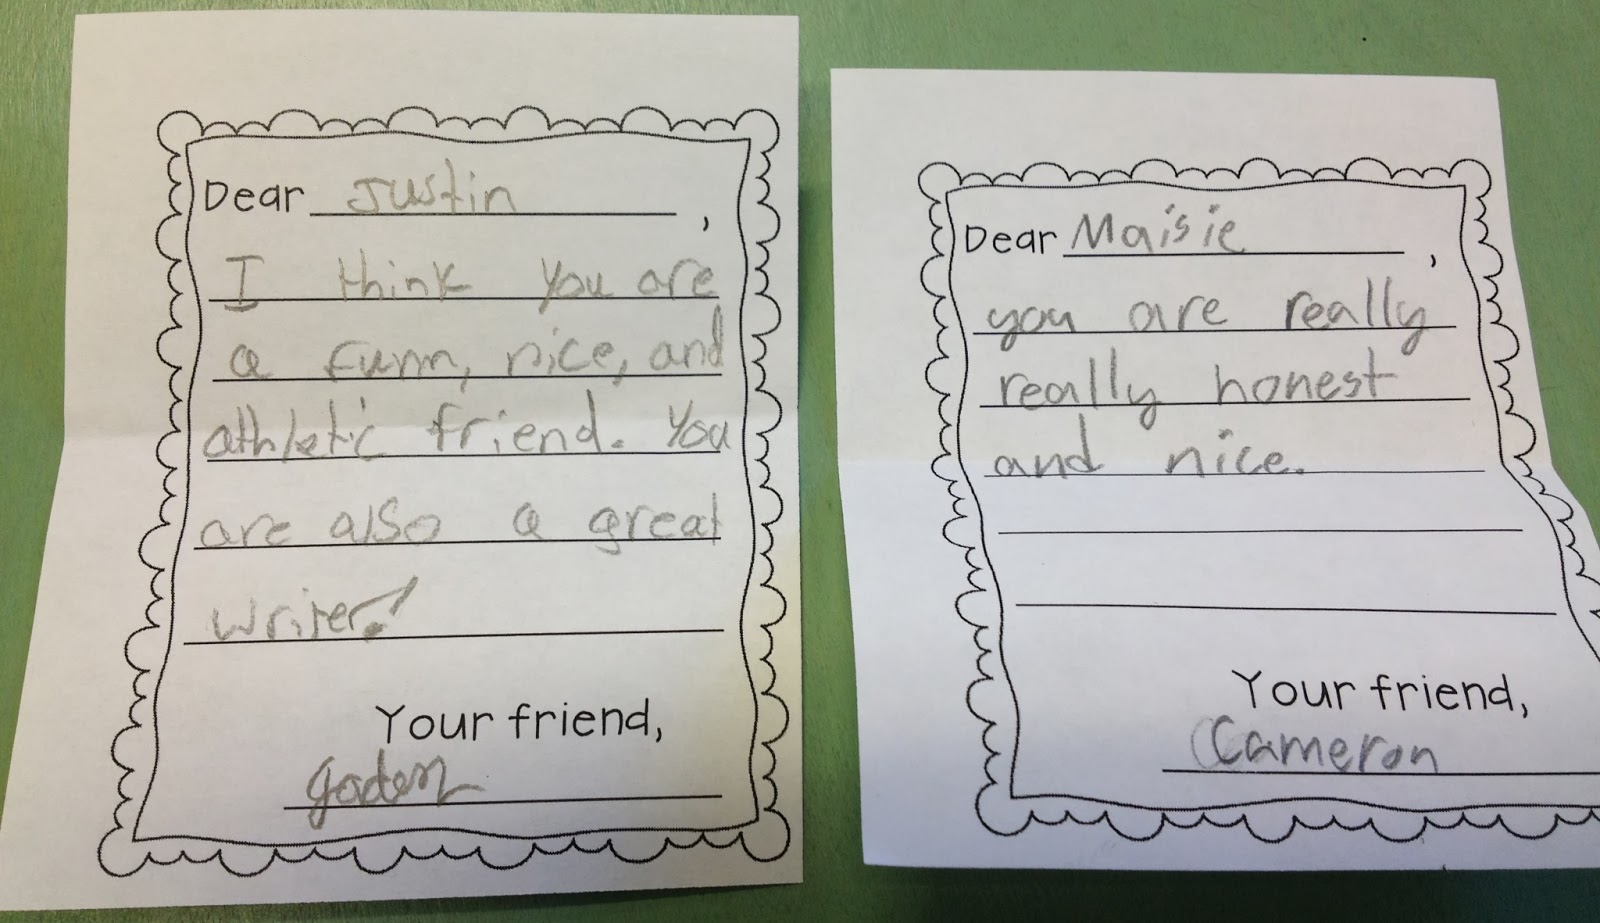 Dear Justin,
I think you are
a funn, nice, and
athletic friend. You
are also a great
writer!
Your friend,
Jaden
Dear Maisie,
you are really
really honest
and nice.
Your friend,
Cameron